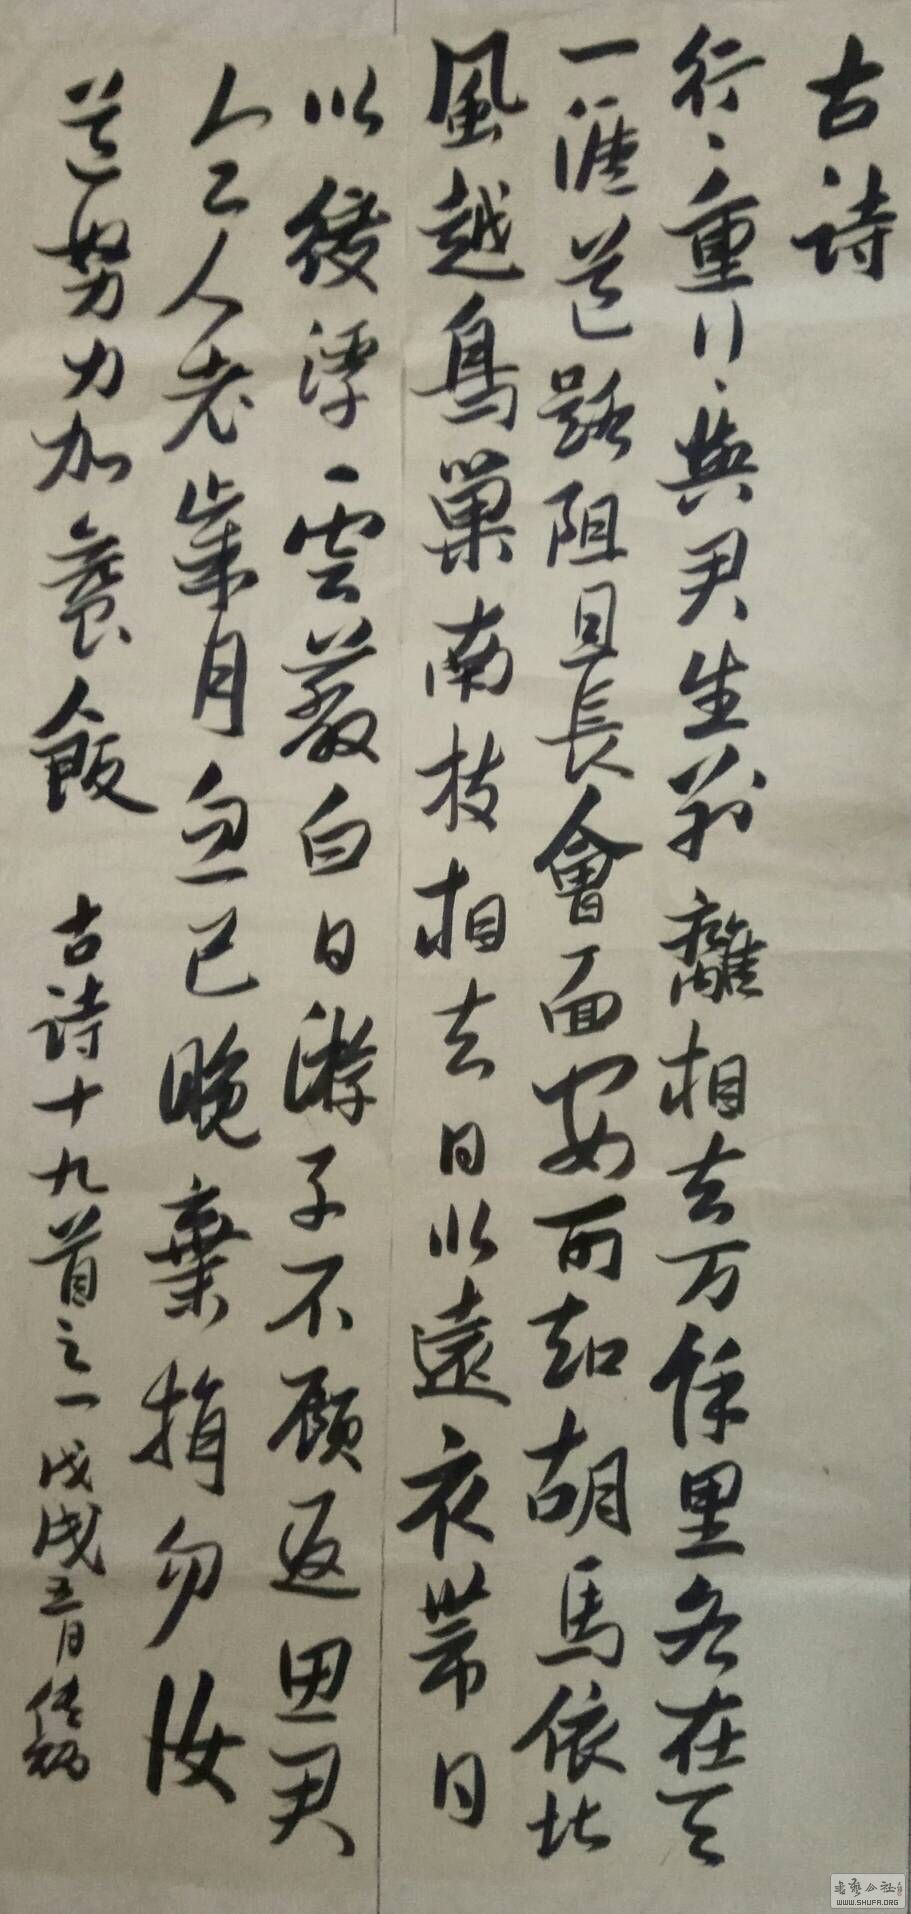 古詩
行、重行、與君生別離相去万餘里各在天
一涯道路阻且長會面安可知胡馬依北
風越鳥巢南枝相去日以遠衣帶日
以緩浮雲蔽白日游子不顧返思君
令人老歲月忽已晚棄捐勿復
道努力加餐飯 古詩十九首之一 戊戌五月
书艺公社
WWW.SHUFA.ORG